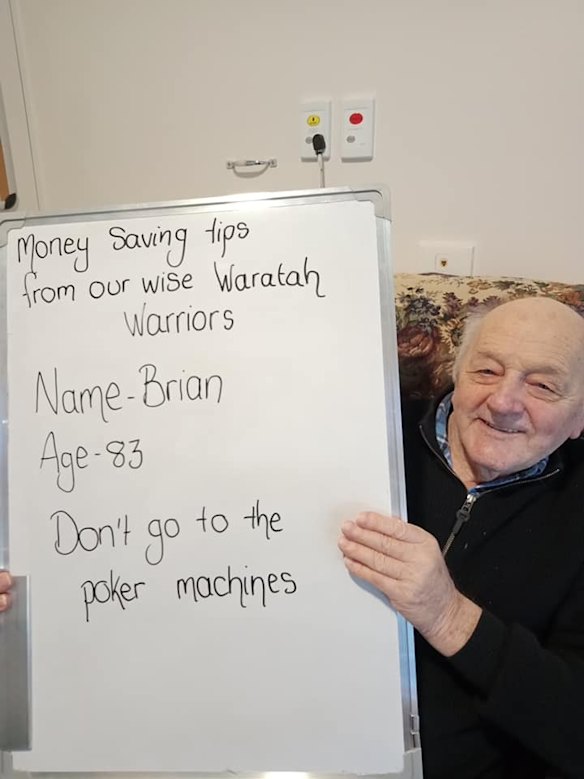 Money Saving tips
from our wise Waratah
Warriors
Name-Brian
Age-83
Don't go to the
poker machines